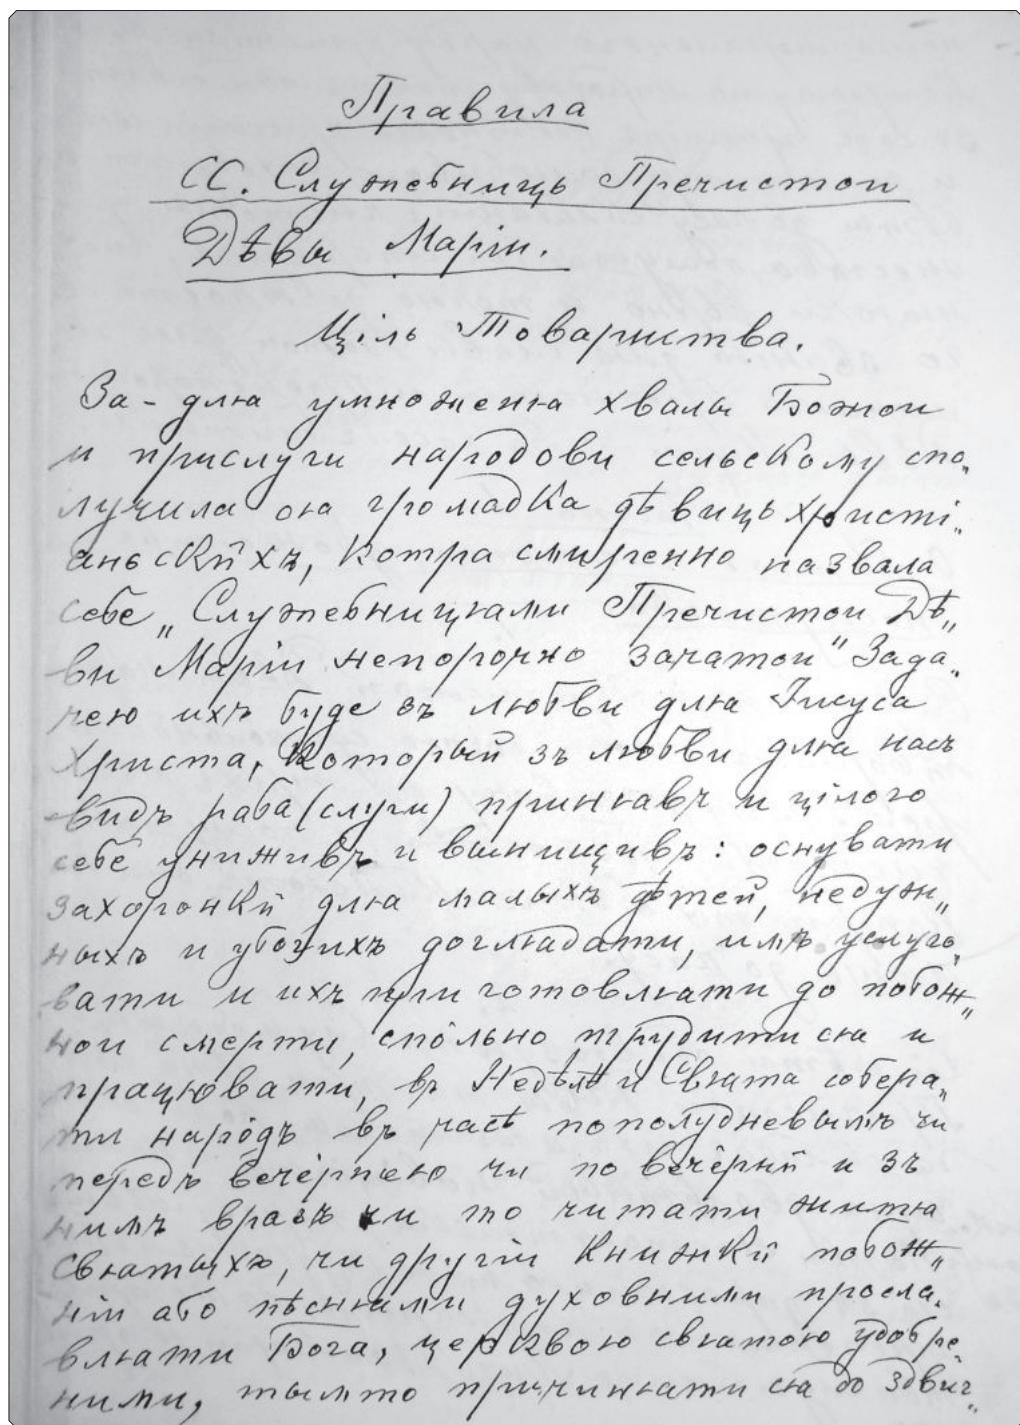 Правила
СС. Служебниць Пречистои
Дѣвы Маріи.
Ціль Товариства.
За-для умноженя хвалы Божои
и прислуги народови сельскому спо„
лучила ся громадка дѣвиць христі„
аньскийхъ, котра смиренно назвала
себе „Служебницями Пречистои Дѣ„
ви Маріи непорочно зачатои" Зада„
чею ихъ буде зъ любви для Іисуса
Христа, Который зъ любви для насъ
видъ раба (слуги) принявъ и цілого
себе униживъ и вынищивъ: оснувати
захоронкй для малыхъ дѣтей, недуж„
ныхъ и убогихъ доглядати, имъ услуго„
вати и ихъ приготовляти до побож„
нои смерти, спôльно трудити ся и
працювати, въ Недѣлѣ и Свята собера„
ти народъ въ часѣ пополудневымъ чи
передъ вечêрнею чи по вечêрнй и зъ
нимъ вразъ чи то читати житя
Святыхъ, чи другіи книжкй побож„
ніи або пѣснями духовними просла„
вляти Бога, церквою святою удобре„
ними, тымто причиняти ся до здвиг„